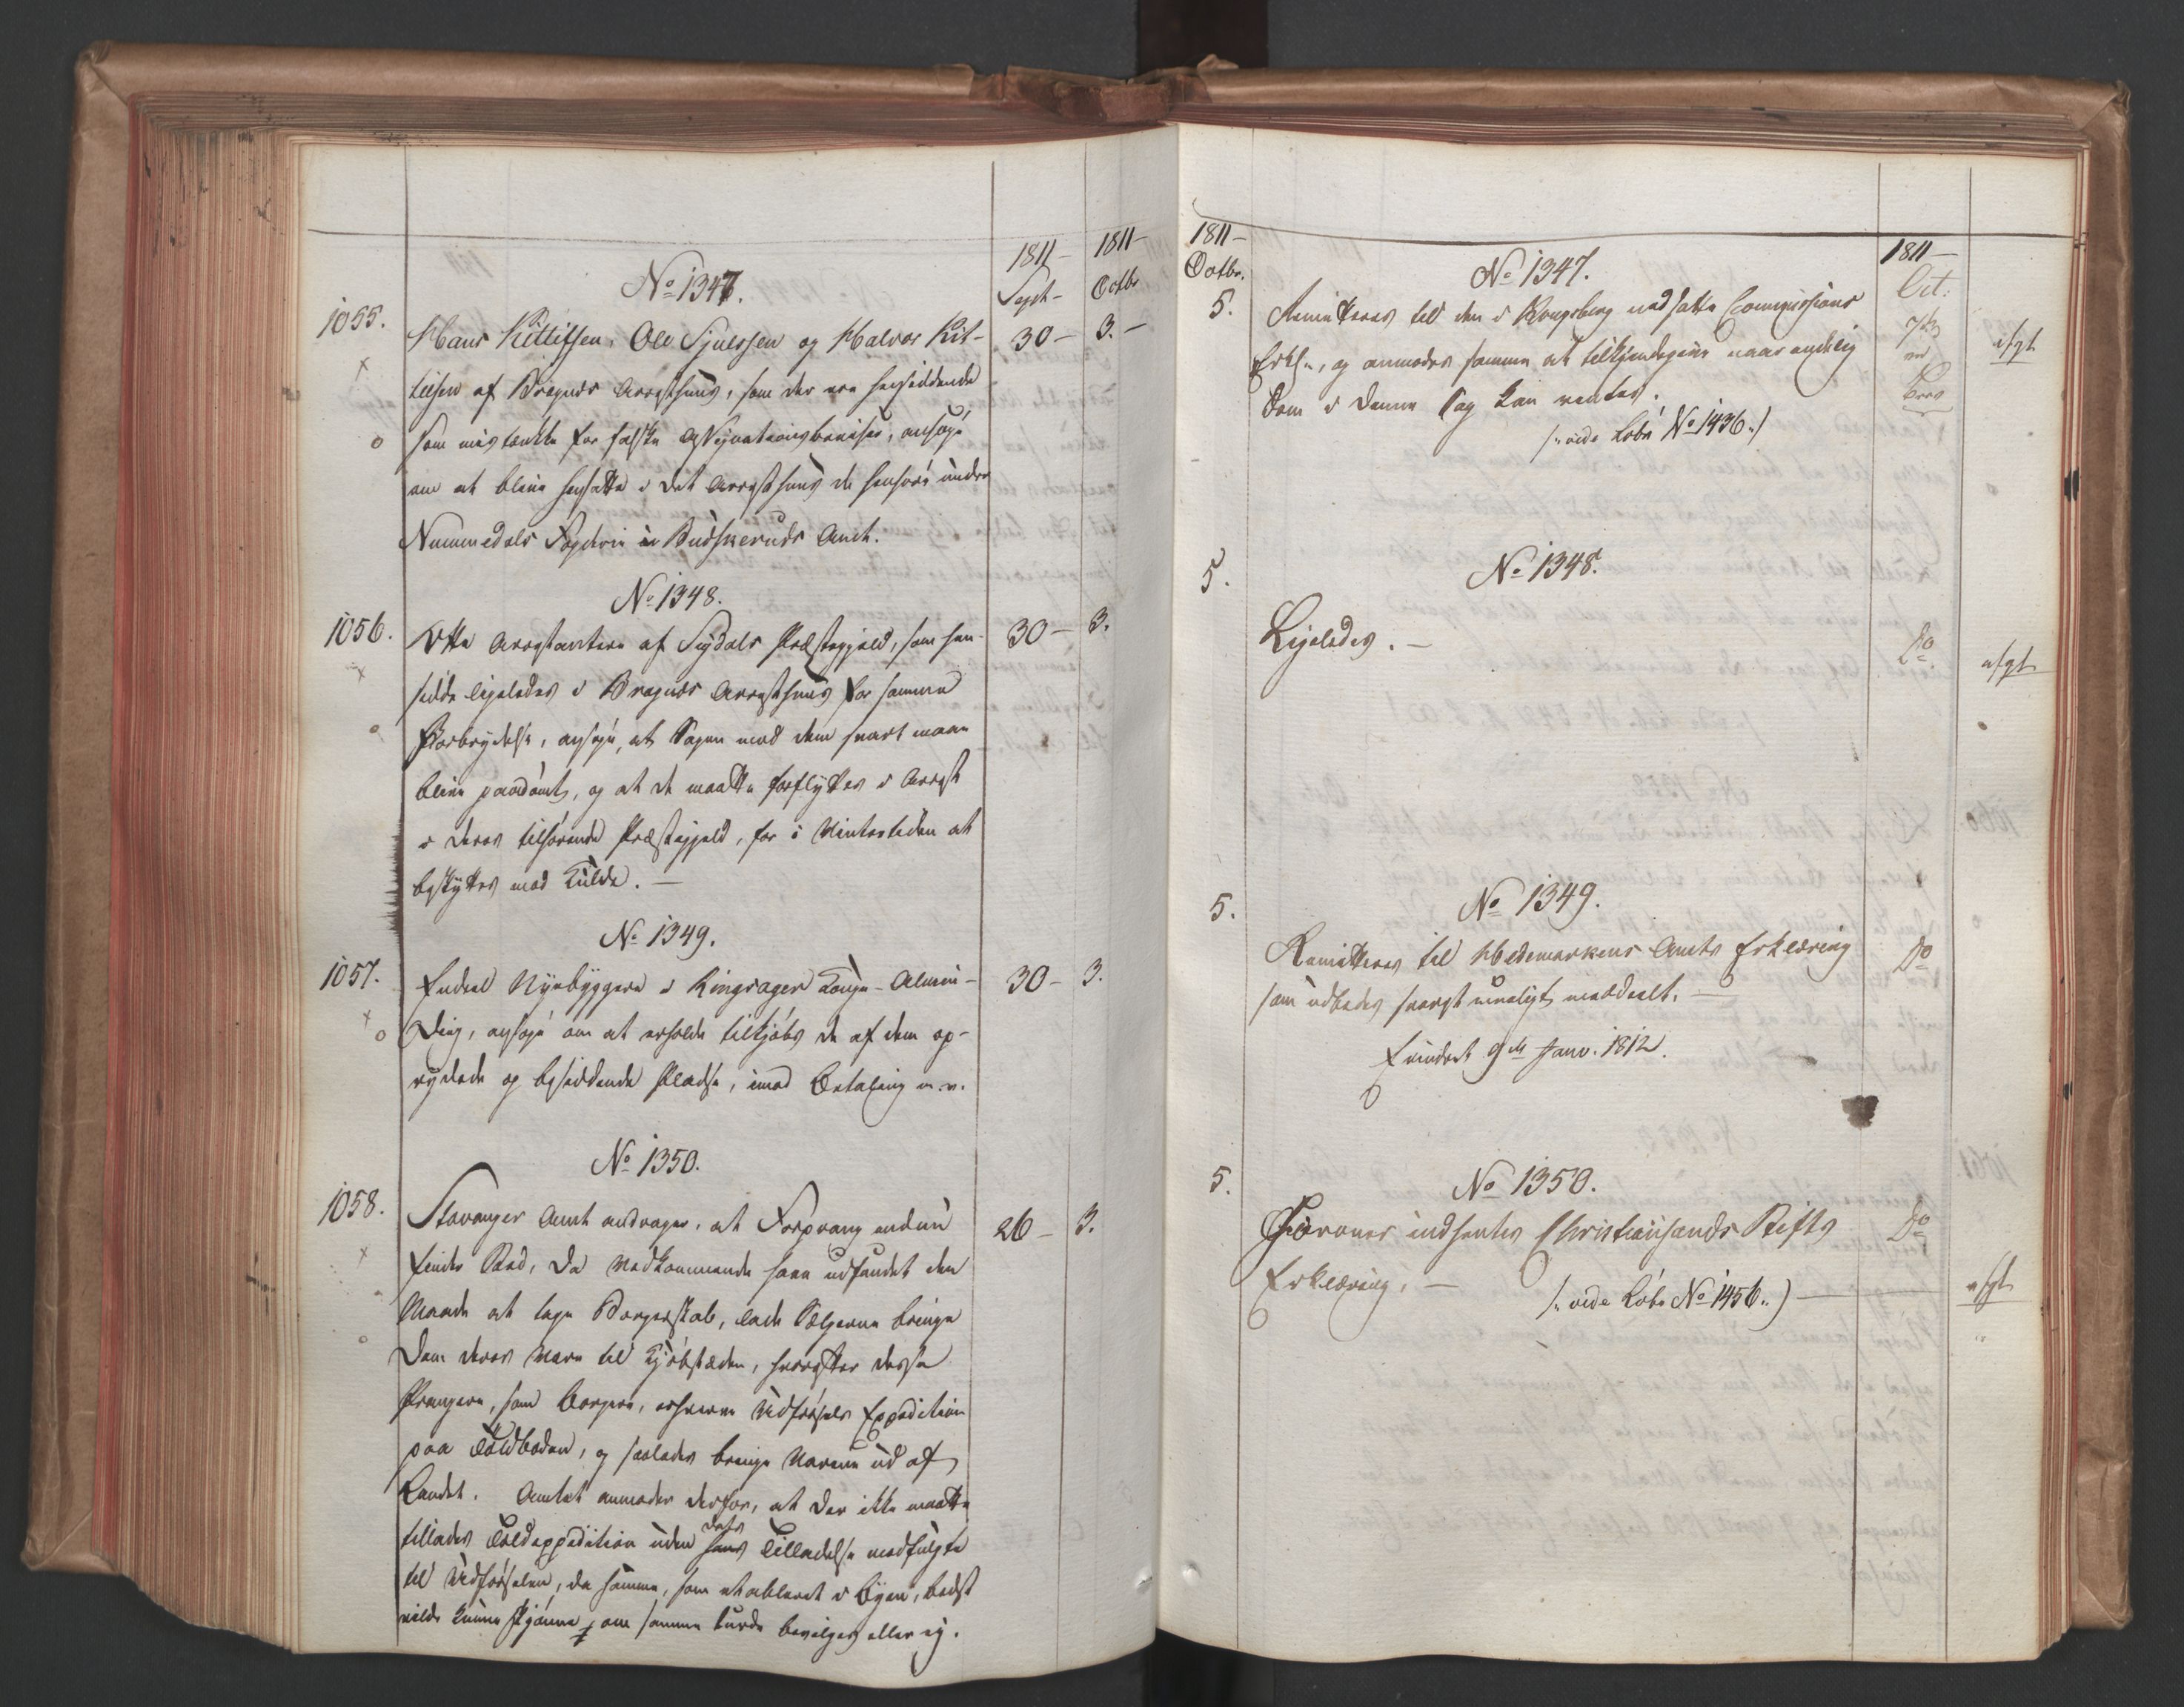 1811 – 1811 –
Sept – Octbr
No 1347.
1055.
Hans Kittilsen, Ole Sjulssen og Halvor Kit-
30 – 3. –
tilsen af Bragnæs Arresthuus, som der ere hensiddende
som mistænkte for falske Assignationsbeviser, ansøge
om at blive hensatte i det Arresthuus de henhøre under
Nummedals Fogderie i Budskeruds Amt.
No 1348.
1056.
Otte Arrestantere af Sigdals Præstegjeld, som hen-
30 – 3.
sidde ligeledes i Bragnæs Arresthuus for samme
Forbrydelse, ansøge, at Sagen mod dem snart maae
blive paadømt, og at de maatte forflyttes i Arrest
i deres tilhørende Præstegjeld, for i Vintertiden at
beskyttes mod Kulde. –
No 1349.
1057.
Endeel Nyebyggere i Ringsager Konge-Almin-
30 – 3.
ding, ansøge om at erholde tilkjøbs de af dem op-
ryddede og besiddende Pladse, imod Betaling m.v.
No 1350.
1058.
Stavanger Amt andrager, at Forprang endnu
26 – 3.
finder Sted, da Vedkommende have udfundet den
Maade at tage Borgerskab, lade Sælgerne bringe
dem deres Vare til Kjøbstæden, hvorefter disse
Prangere, som Borgere, erhverve Udførsels Expedition
paa Toldboden, og saaledes bringe Varene ud af
Landet. Amtet anmoder derfor, at der ikke maatte
tillades Toldexpedition uden dets Tilladelse medfulgte
til Udførselen, da samme, som etableret i Byen, bedst
vilde kunne skjønne om samme burde bevilges eller ej.
1811 –
Octbr.
1811 –
Oct:
No 1347.
5.
Remitteres til den i Kongsberg nedsatte Commissions
Erkl., og anmodes samme at tilkjendegive naar endelig
Dom i denne Sag kan ventes.
(: vide Lobe No 1436 :)
7de
ved
Brev
afgt
No 1348.
5.
Ligeledes. –
Do
afgt
No 1349.
5.
Remitteres til Hedemarkens Amts Erklæring
Do
som udbedes snarest mueligt meddeelt. –
Erindret 9de Janv. 1812.
No 1350.
5.
Herover indhentes Christiansands Stifts
Do
Erklæring. –
(: vide Lobe No 1456 :)
afgt